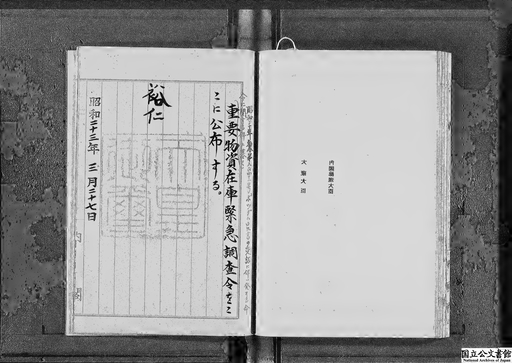 内閣総理大臣
大蔵大臣
重要物資在庫緊急調査令をこ
こに公布する。
裕仁
昭和二十三年三月二十七日
内閣
国立公文書館
National Archives of Japan